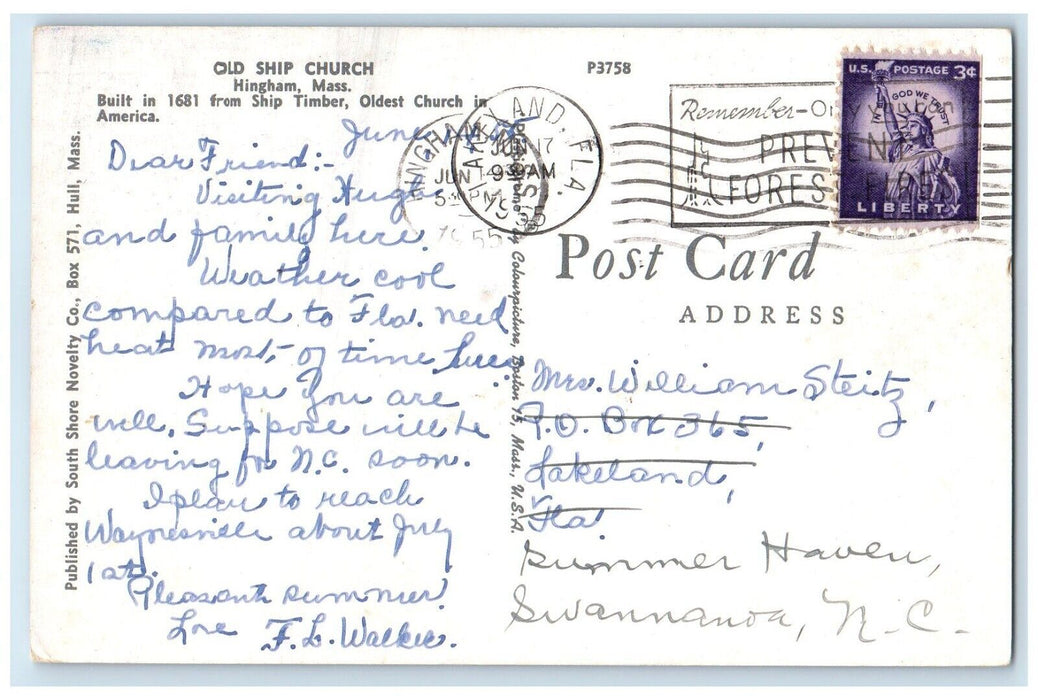 OLD SHIP CHURCH
Hingham, Mass.
Built in 1681 from Ship Timber, Oldest Church in
America.
P3758
June
Dear Friend:-
Visiting Hugh
and family here.
Weather cool
compared to Fla. need
heat most, of time here.
Hope you are
well. Suppose will be
leaving for N.C. soon.
I plan to reach
Waynesville about July
1st.
Pleasant summer.
Love F. L. Walker.
Published by South Shore Novelty Co., Box 571, Hull, Mass.
by Colourpicture, Boston 15, Mass., U.S.A.
HINGHAM
JUN
5 PM
1955
LAKELAND, FLA
JUN 17
9 AM
Remember-Only
PREVENT
FOREST FIRES
U.S. POSTAGE 3¢
IN GOD WE TRUST
LIBERTY
Post Card
ADDRESS
Mrs. William Steitz,
P.O. Box 365,
Lakeland,
Fla
Summer Haven,
Swannanoa, N.C.